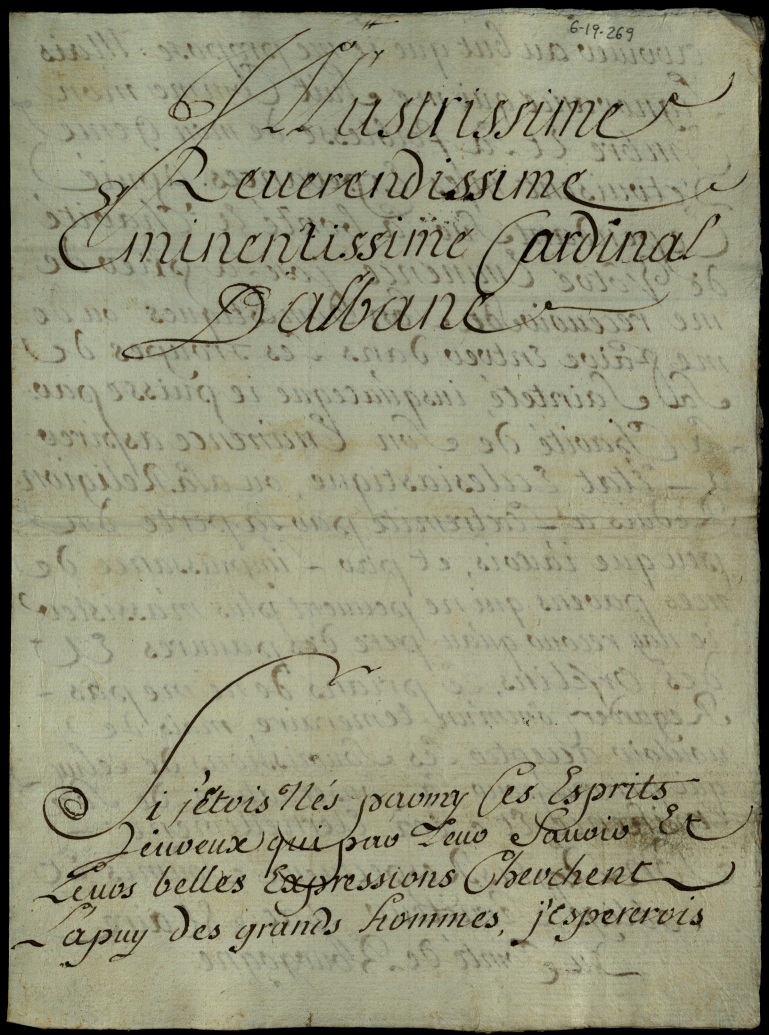 6-19-269
Illustrissime
Reverendissime
Eminentissime Cardinal
Dalbane
Si j'étois Nés parmy Ces Esprits
heureux qui par Leur Savoir Et
Leurs belles Expressions Cherchent
L'apuy des grands hommes, j'espererois